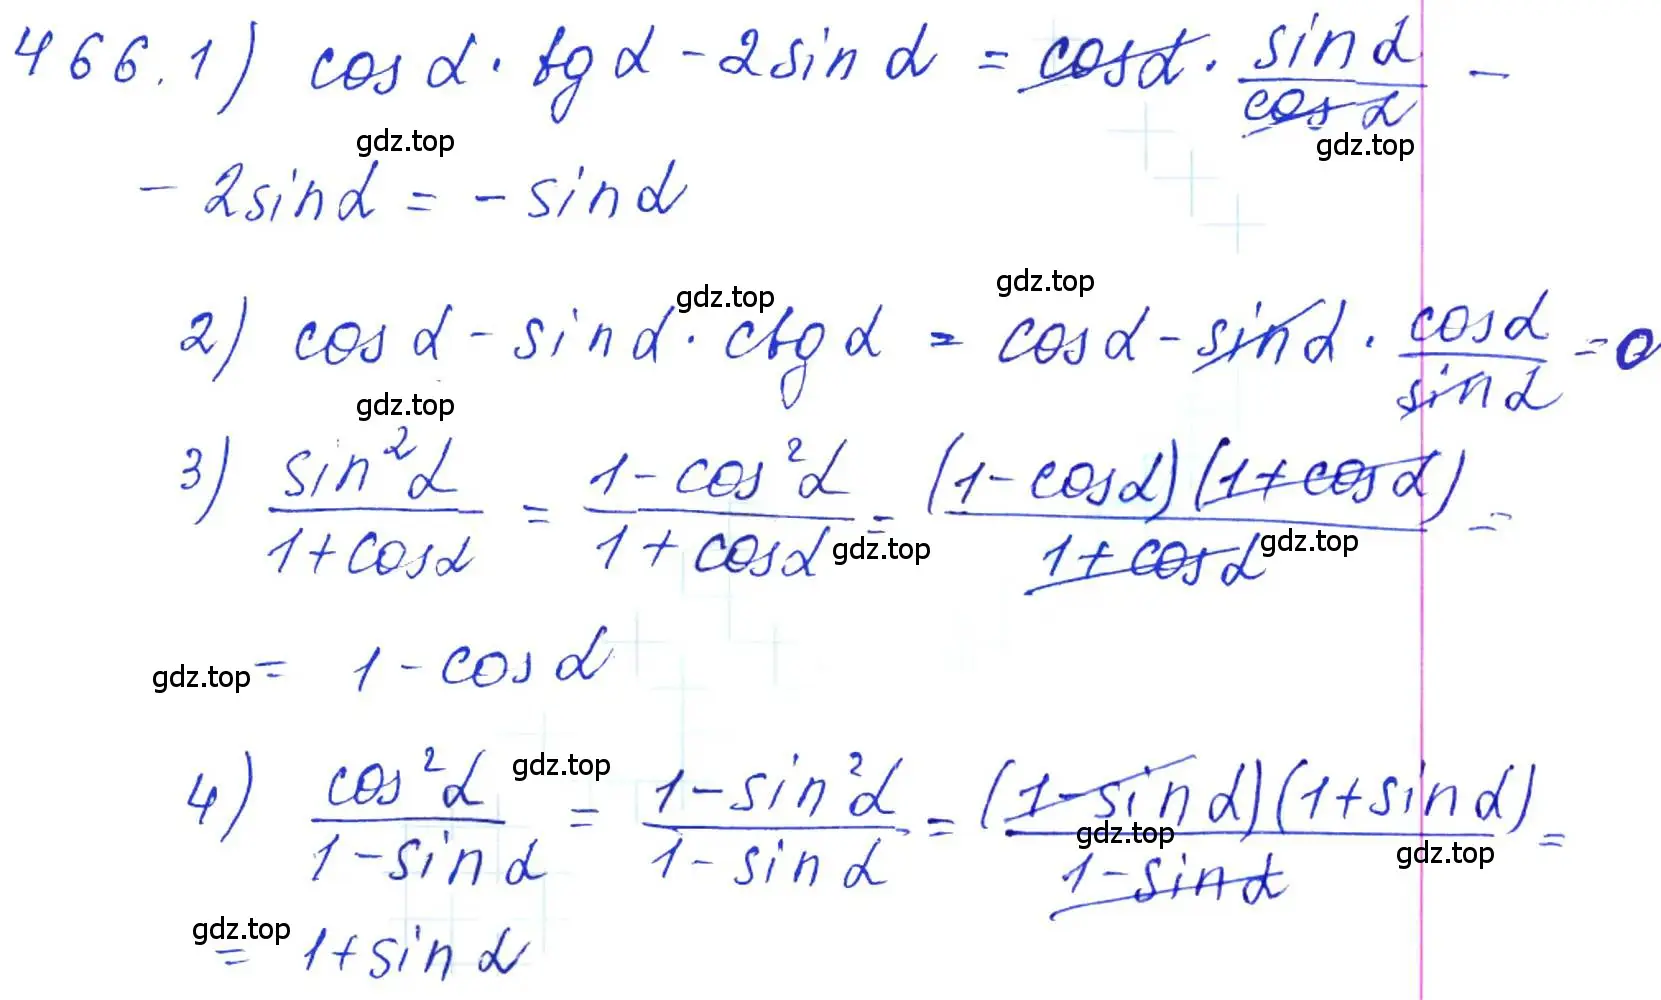 466.1) cos α · tg α - 2 sin α = cos α · sin α / cos α -
gdz.top gdz.top
- 2 sin α = - sin α
gdz.top gdz.top
2) cos α - sin α · ctg α = cos α - sin α · cos α / sin α = 0
gdz.top
3) sin² α / 1 + cos α = 1 - cos² α / 1 + cos α = (1 - cos α)(1 + cos α) / 1 + cos α =
gdz.top gdz.top
gdz.top
= 1 - cos α
gdz.top
4) cos² α / 1 - sin α = 1 - sin² α / 1 - sin α = (1 - sin α)(1 + sin α) / 1 - sin α =
gdz.top gdz.top
gdz.top
= 1 + sin α